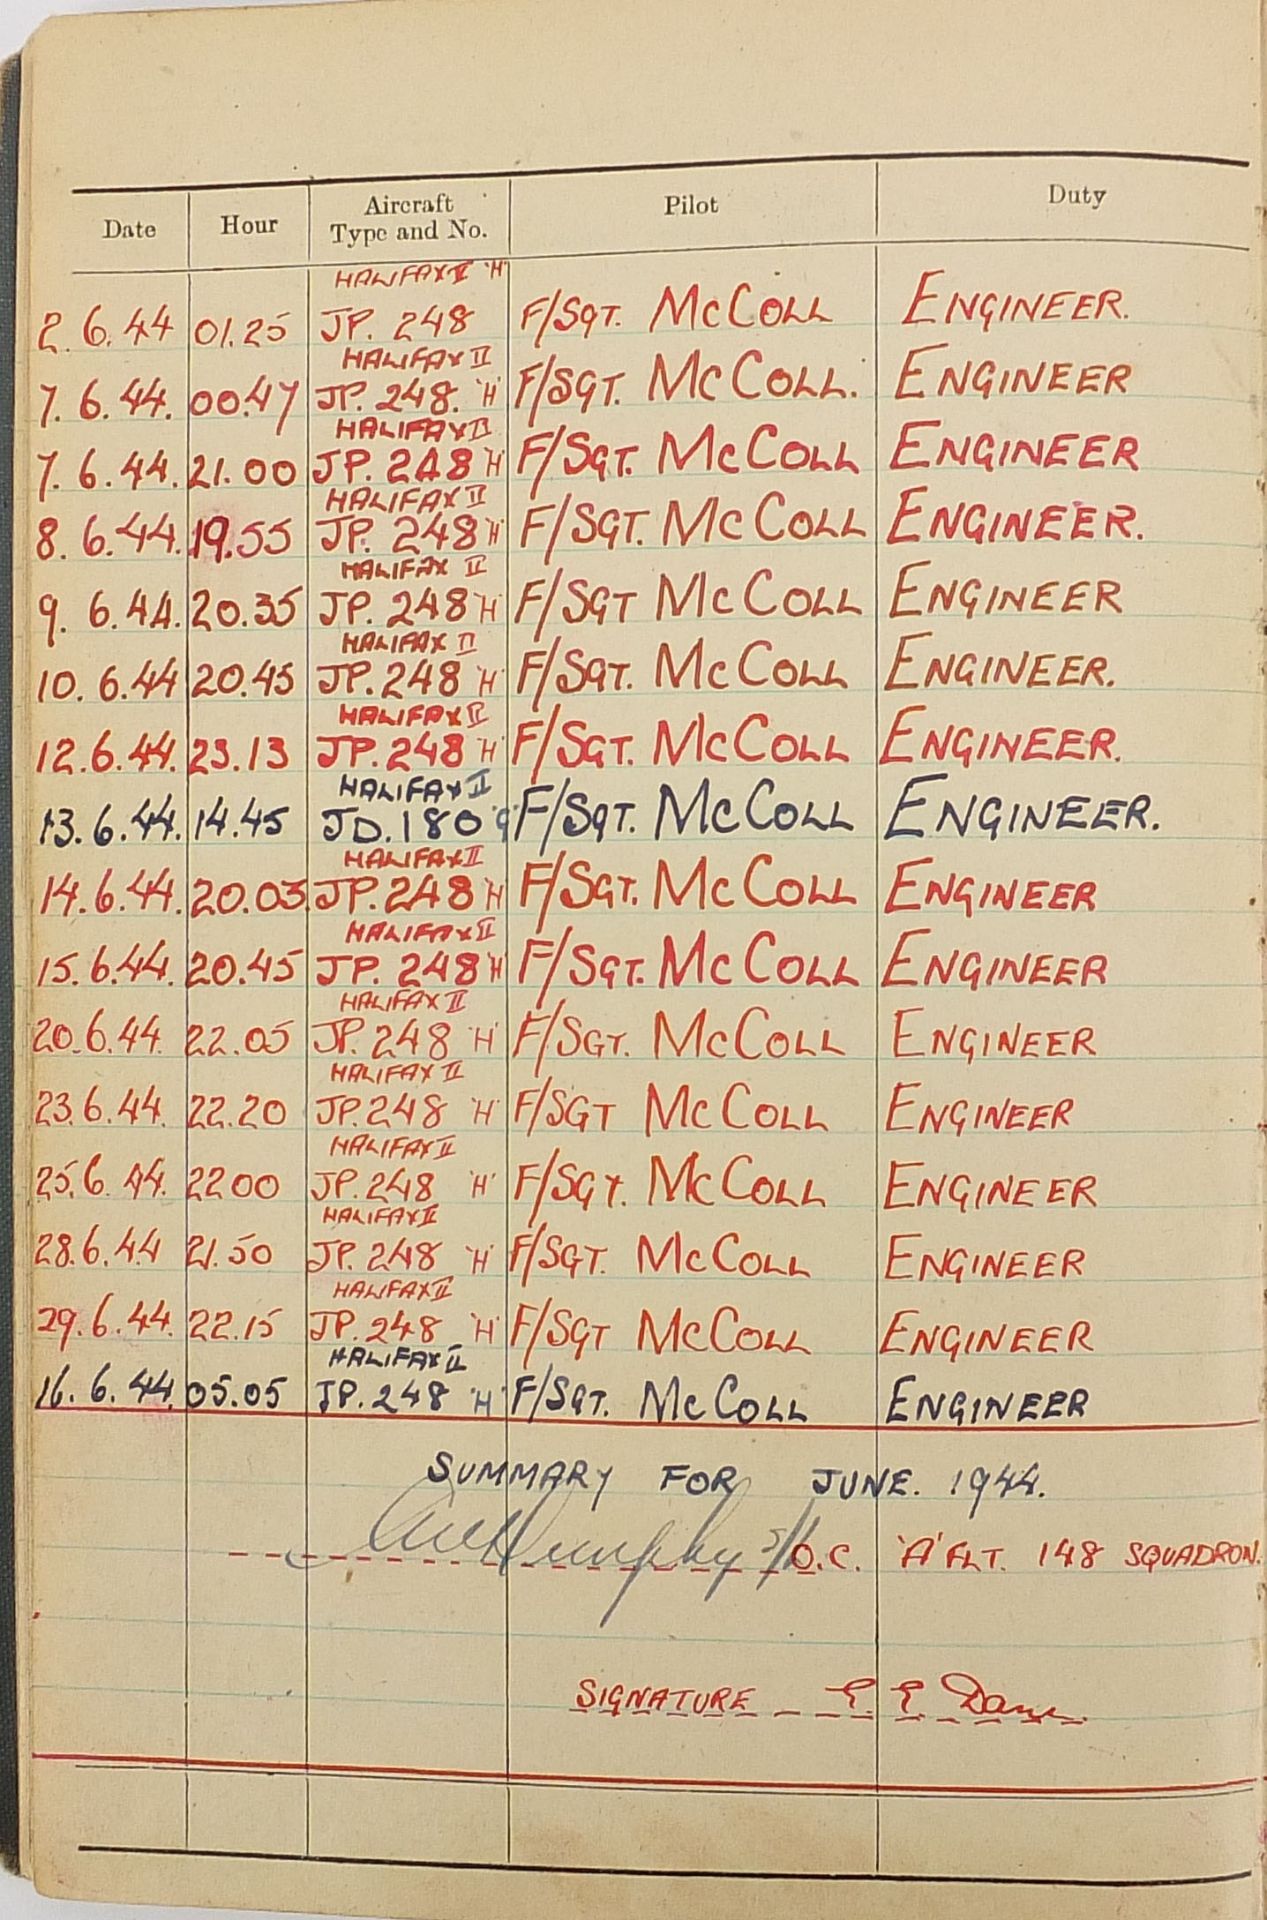 Date Hour Aircraft Type and No. Pilot Duty
HALIFAX II 'H'
2.6.44 01.25 JP. 248 F/SGT. McCOLL ENGINEER.
HALIFAX II
7.6.44. 00.47 JP. 248. 'H' F/SGT. McCOLL. ENGINEER
HALIFAX II
7.6.44. 21.00 JP. 248 'H' F/SGT. McCOLL ENGINEER
HALIFAX II
8.6.44. 19.55 JP. 248 'H' F/SGT. McCOLL ENGINEER.
HALIFAX II
9.6.44. 20.35 JP. 248 'H' F/SGT McCOLL ENGINEER
HALIFAX II
10.6.44 20.45 JP. 248 'H' F/SGT. McCOLL ENGINEER.
HALIFAX II
12.6.44. 23.13 JP. 248 'H' F/SGT. McCOLL ENGINEER.
HALIFAX II
13.6.44. 14.45 JD. 180 F/SGT. McCOLL ENGINEER.
HALIFAX II
14.6.44. 20.03 JP. 248 'H' F/SGT. McCOLL ENGINEER
HALIFAX II
15.6.44. 20.45 JP. 248 'H' F/SGT. McCOLL ENGINEER
HALIFAX II
20.6.44. 22.05 JP. 248 'H' F/SGT. McCOLL ENGINEER
HALIFAX II
23.6.44. 22.20 JP. 248 'H' F/SGT McCOLL ENGINEER
HALIFAX II
25.6.44. 22 00 JP. 248 'H' F/SGT. McCOLL ENGINEER
HALIFAX II
28.6.44 21.50 JP. 248 'H' F/SGT. McCOLL ENGINEER
HALIFAX II
29.6.44. 22.15 JP. 248 'H' F/SGT McCOLL ENGINEER
HALIFAX II
16.6.44. 05.05 JP. 248 'H' F/SGT. McCOLL ENGINEER
SUMMARY FOR JUNE. 1944.
S/L O.C. 'A' FLT. 148 SQUADRON.
SIGNATURE E. E.